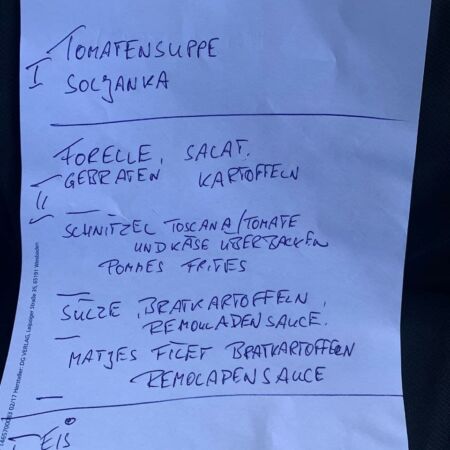 I
TOMATENSUPPE
SOLJANKA
II
FORELLE, SALAT.
GEBRATEN KARTOFFELN
SCHNITZEL TOSCANA/TOMATE
UND KÄSE ÜBERBACKEN
POMMES FRITES
SÜLZE, BRATKARTOFFELN,
REMOULADENSAUCE.
MATJES FILET BRATKARTOFFELN
REMOLADENSAUCE
EIS
02/17 Hersteller: DG VERLAG, Leipziger Straße 35, 65191 Wiesbaden